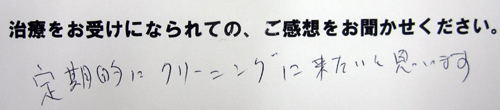 治療をお受けになられての、ご感想をお聞かせください。
定期的に クリーニングに来たいと思います